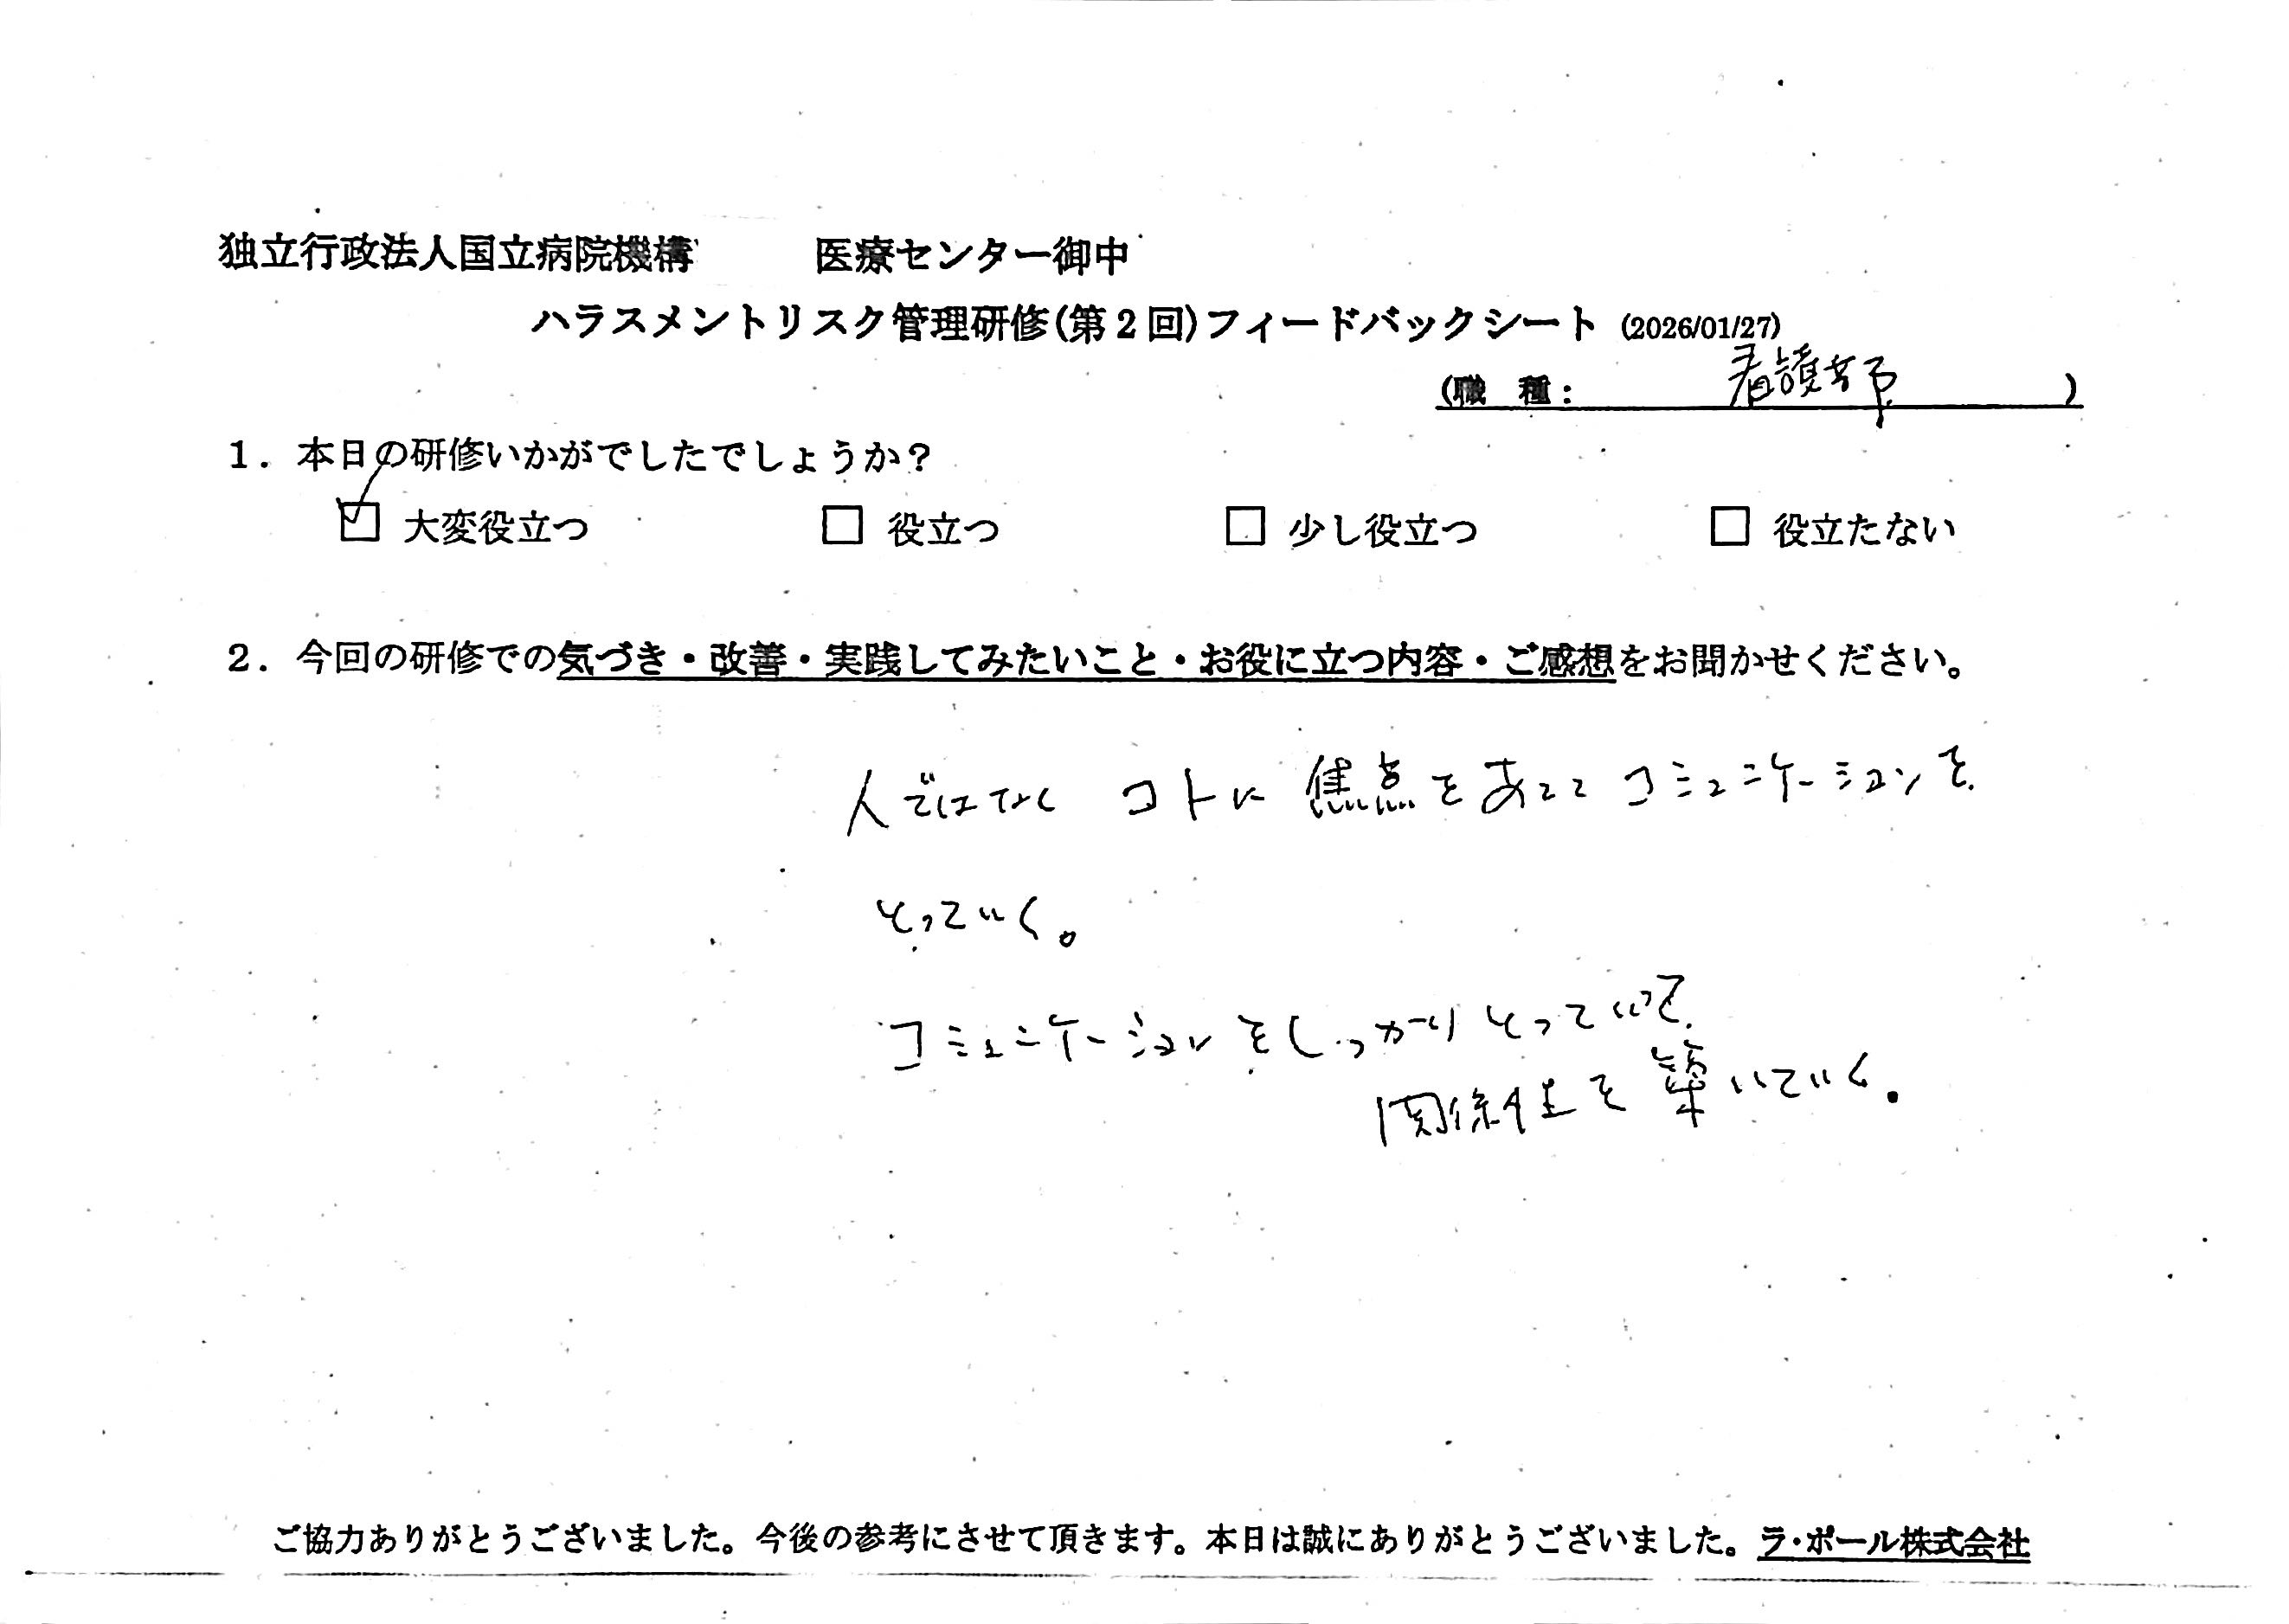 独立行政法人国立病院機構　　　医療センター御中
ハラスメントリスク管理研修(第２回)フィードバックシート (2026/01/27)
(職　種：　看護部　)
１．本日の研修いかがでしたでしょうか？
☑ 大変役立つ　□ 役立つ　□ 少し役立つ　□ 役立たない
２．今回の研修での気づき・改善・実践してみたいこと・お役に立つ内容・ご感想をお聞かせください。
人ではなく コトに 焦点をあてて コミュニケーションを
とっていく。
コミュニケーションをしっかりとっていって
関係性を築いていく.
ご協力ありがとうございました。今後の参考にさせて頂きます。本日は誠にありがとうございました。ラ・ポール株式会社